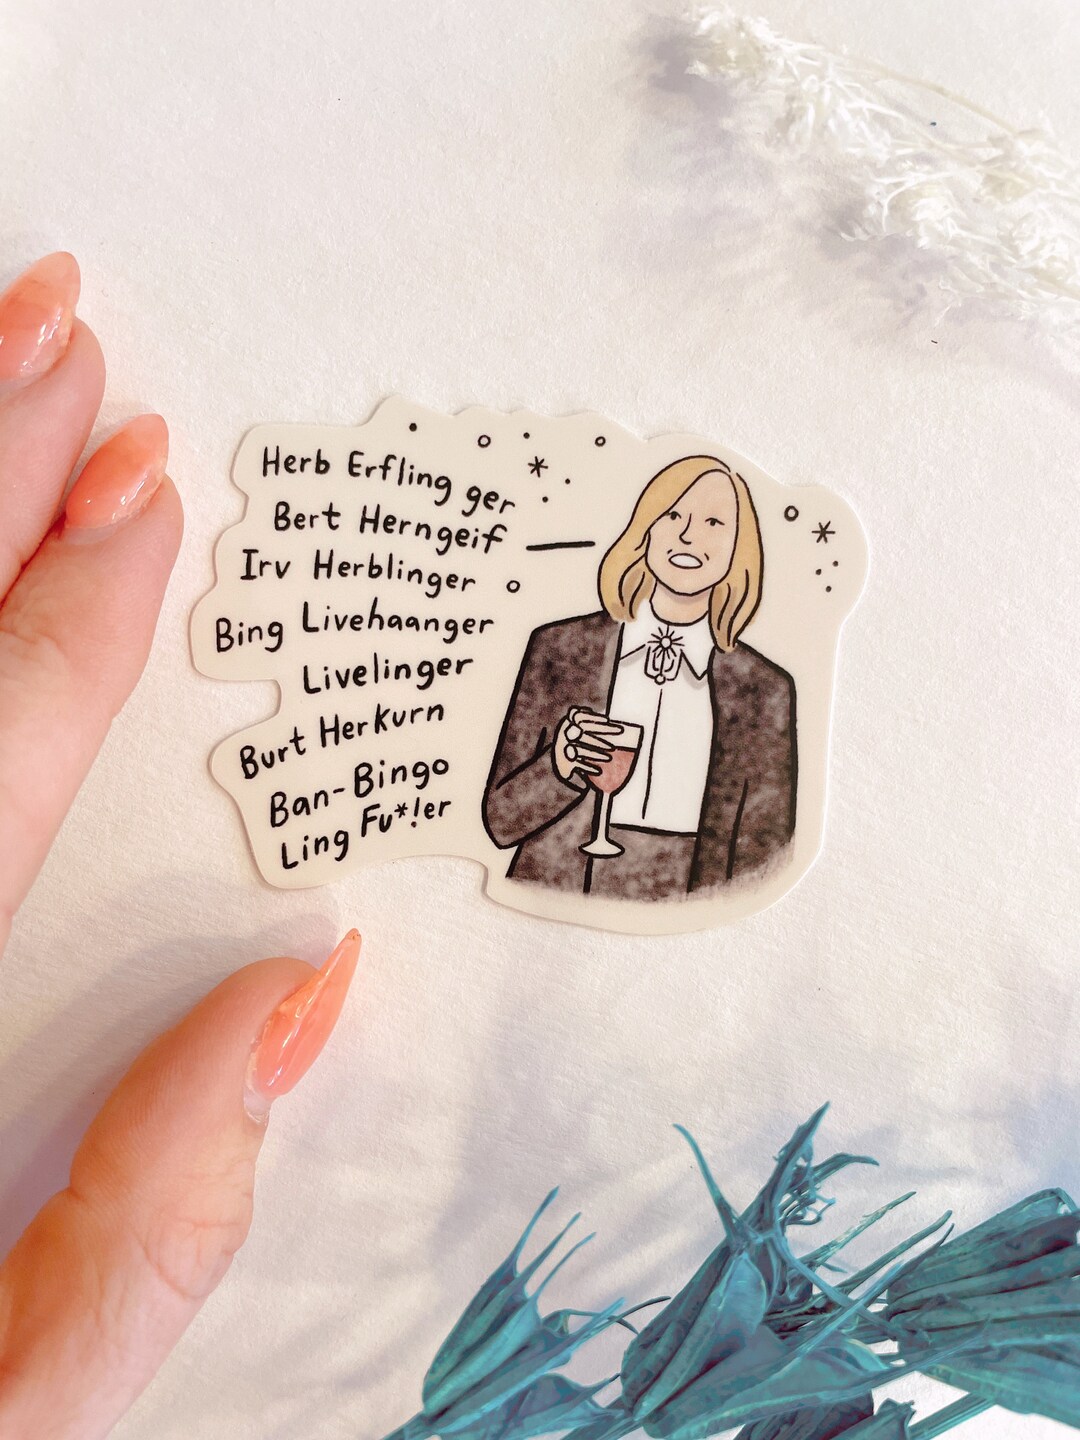 Herb Erfling ger
Bert Herngeif
Irv Herblinger
Bing Livehaanger
Livelinger
Burt Herkurn
Ban-Bingo
Ling Fu*!er